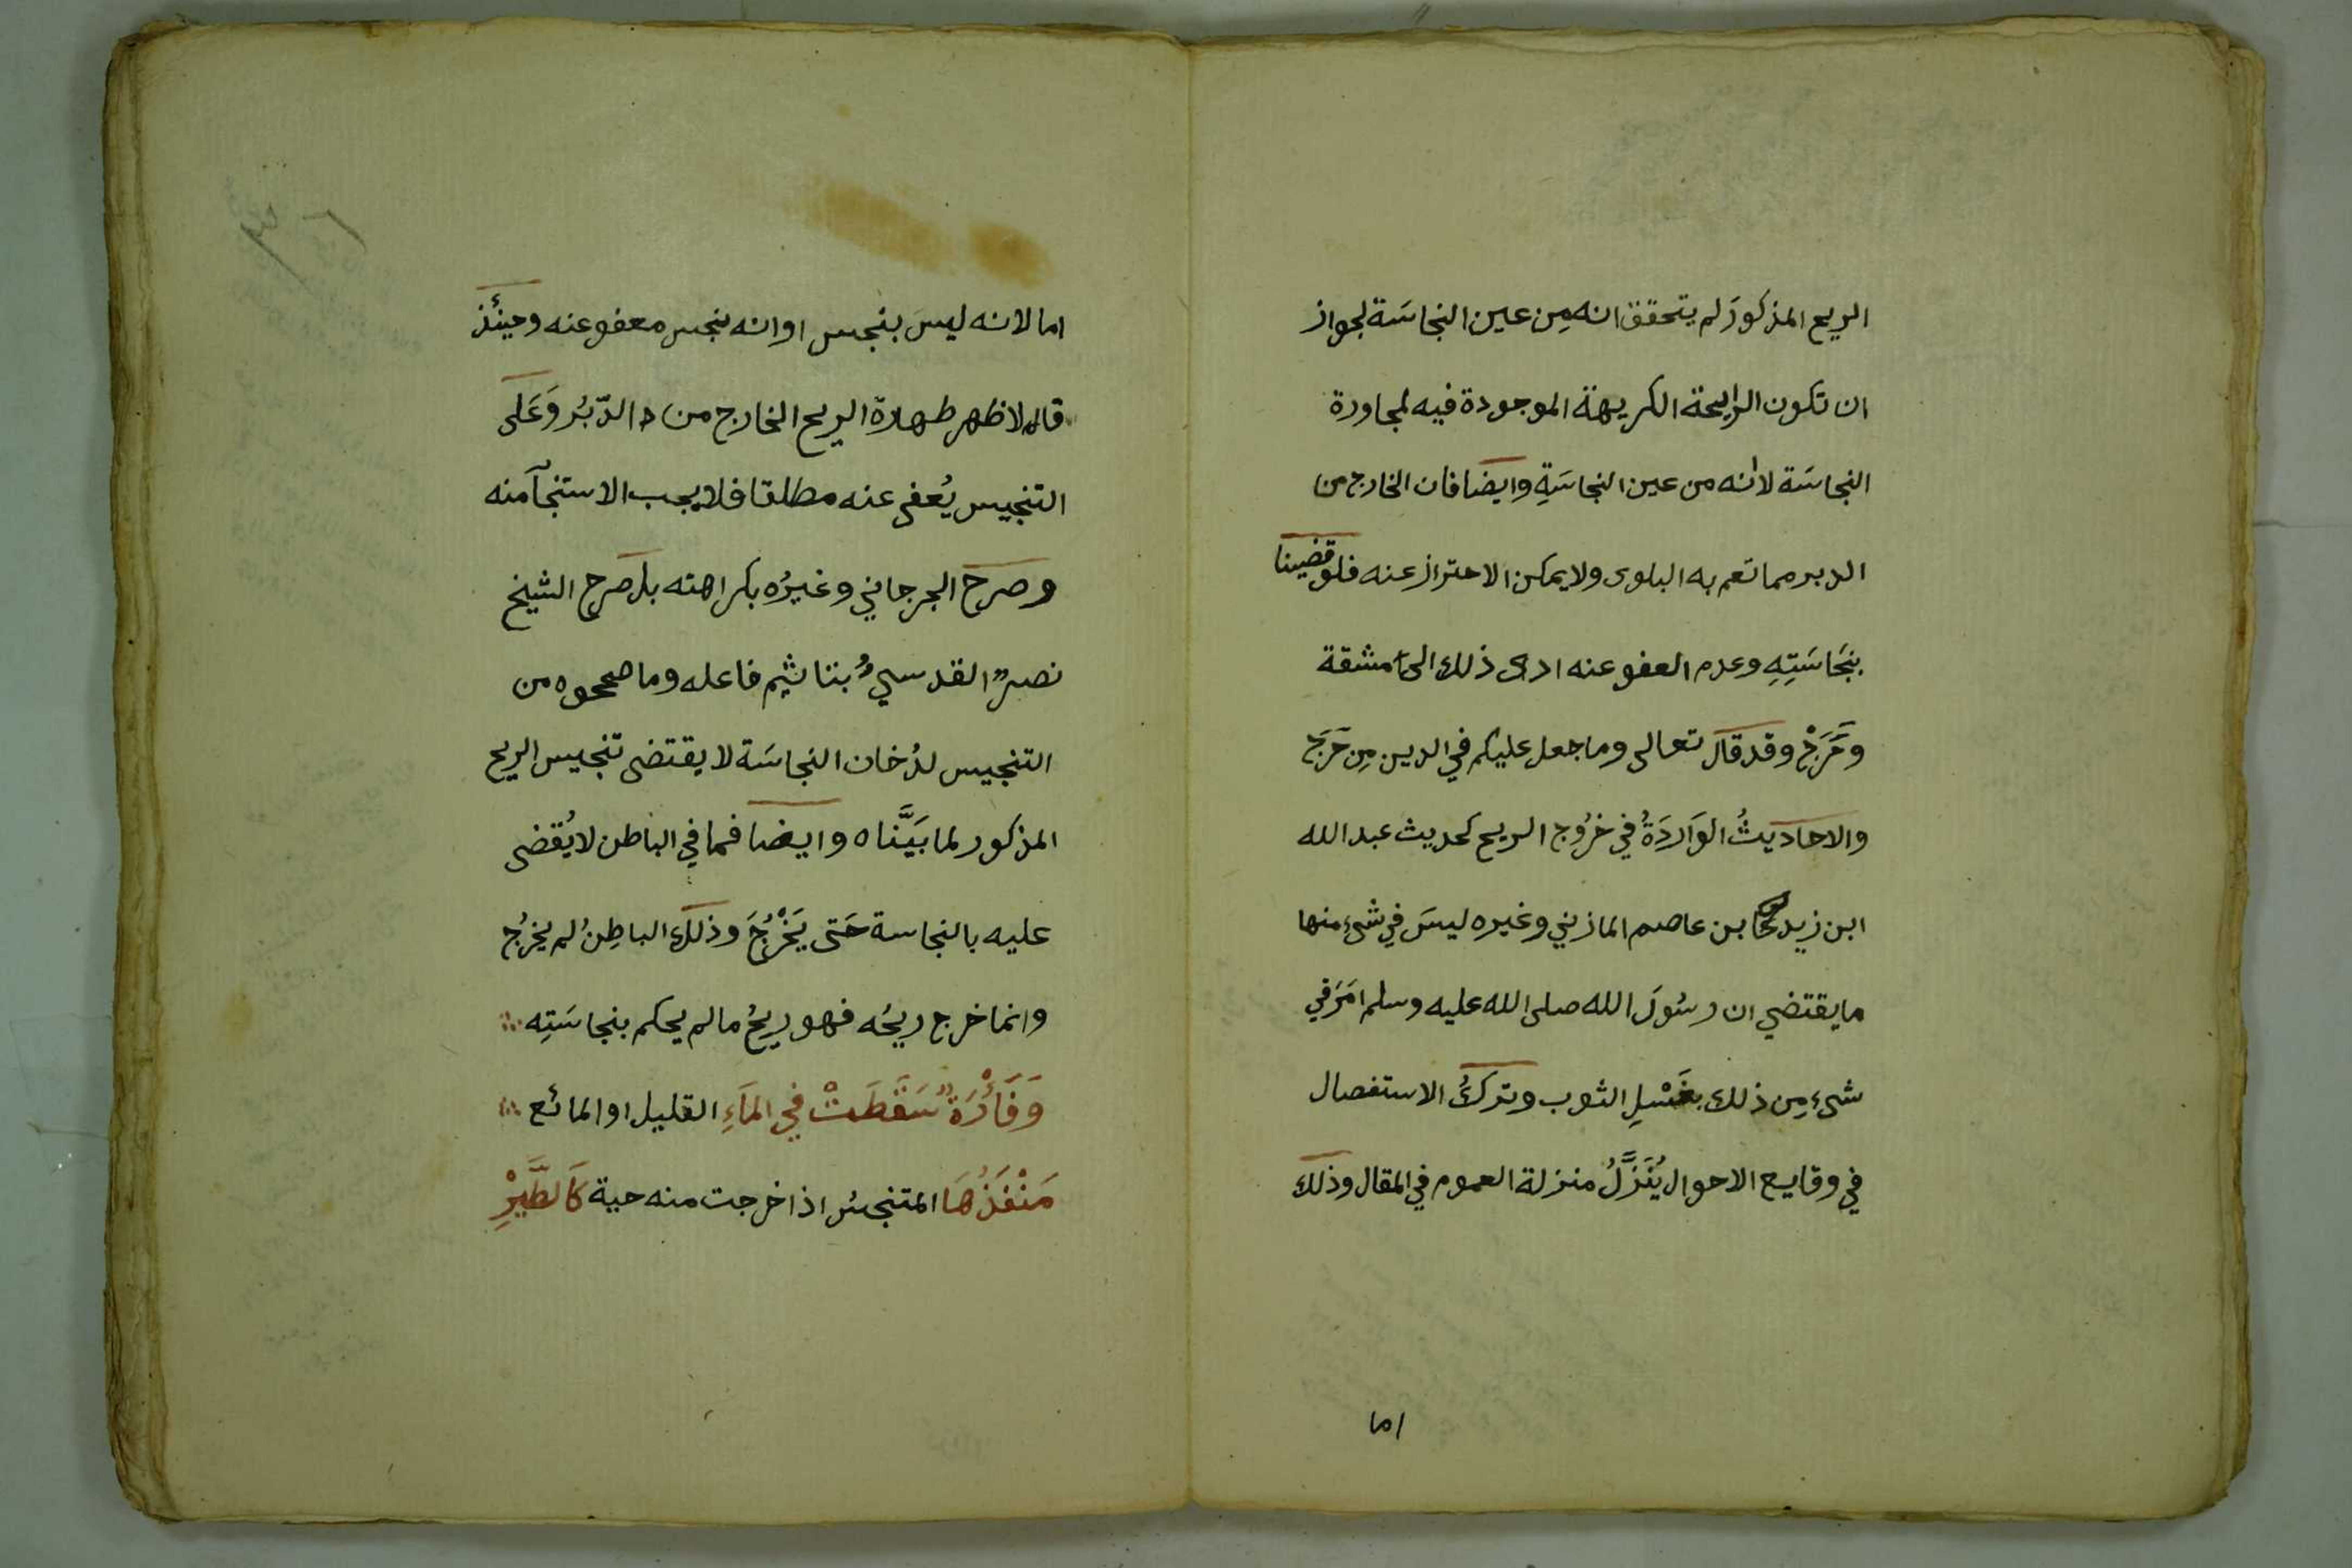 الريح المذكورَ لم يتحقق انه مِن عين النجاسَة لجواز
ان تكون الرايحة الكريهة الموجودة فيه لمجاورة
النجاسَة لانه من عين النجاسَةِ وايضا فان الخارج من
الدبر مما تعم به البلوى ولا يمكن الاحتراز عنه فلو قضينا
بنجَاسَتِهِ وعدم العفو عنه ادى ذلك الى مشقة
وحَرَجْ وقد قال تعالى وما جعل عليكم في الدين مِن حَرَج
والاحاديثُ الوَاردَةُ في خرُوج الريح كحديث عبد الله
ابن زيد بن عاصم المازني وغيره ليسَ في شئ منها
ما يقتضي ان رسُولَ الله صلى الله عليه وسلم امَرَ في
شئ مِن ذلك بغَسْلِ الثوب وتركُ الاستفصال
في وقايع الاحوال يُنَزَّلُ منزلة العموم في المقال وذلك
اما
اما لانه ليسَ بنجس او انه نجس معفو عنه وحينئذ
قال لاظهر طهارة الريح الخارج من الدّبُر وَعَلى
التنجيس يُعفى عنه مطلقا فلا يجب الاستنجآ منه
وصرح الجرجاني وغيرُه بكراهته بل صرح الشيخ
نصرٌ القدسيُّ بتاثيم فاعله وما صححوه من
التنجيس لدُخان النجاسَة لا يقتضى تنجيس الريح
المذكور لما بَيَّناه وايضا فما في الباطن لا يُقضى
عليه بالنجاسة حَتى يَخْرُجَ وذلك الباطِنُ لم يخرُج
وانما خرج ريحُه فهو ريحُ ما لم يحكم بنجاسَتِه
وَفَأْرَةٌ سَقَطَتْ في المَاءِ القليل او المائع
مَنْفَذُهَا المتنجسُ اذا خرجت منه حية كَالطَّيْرِ